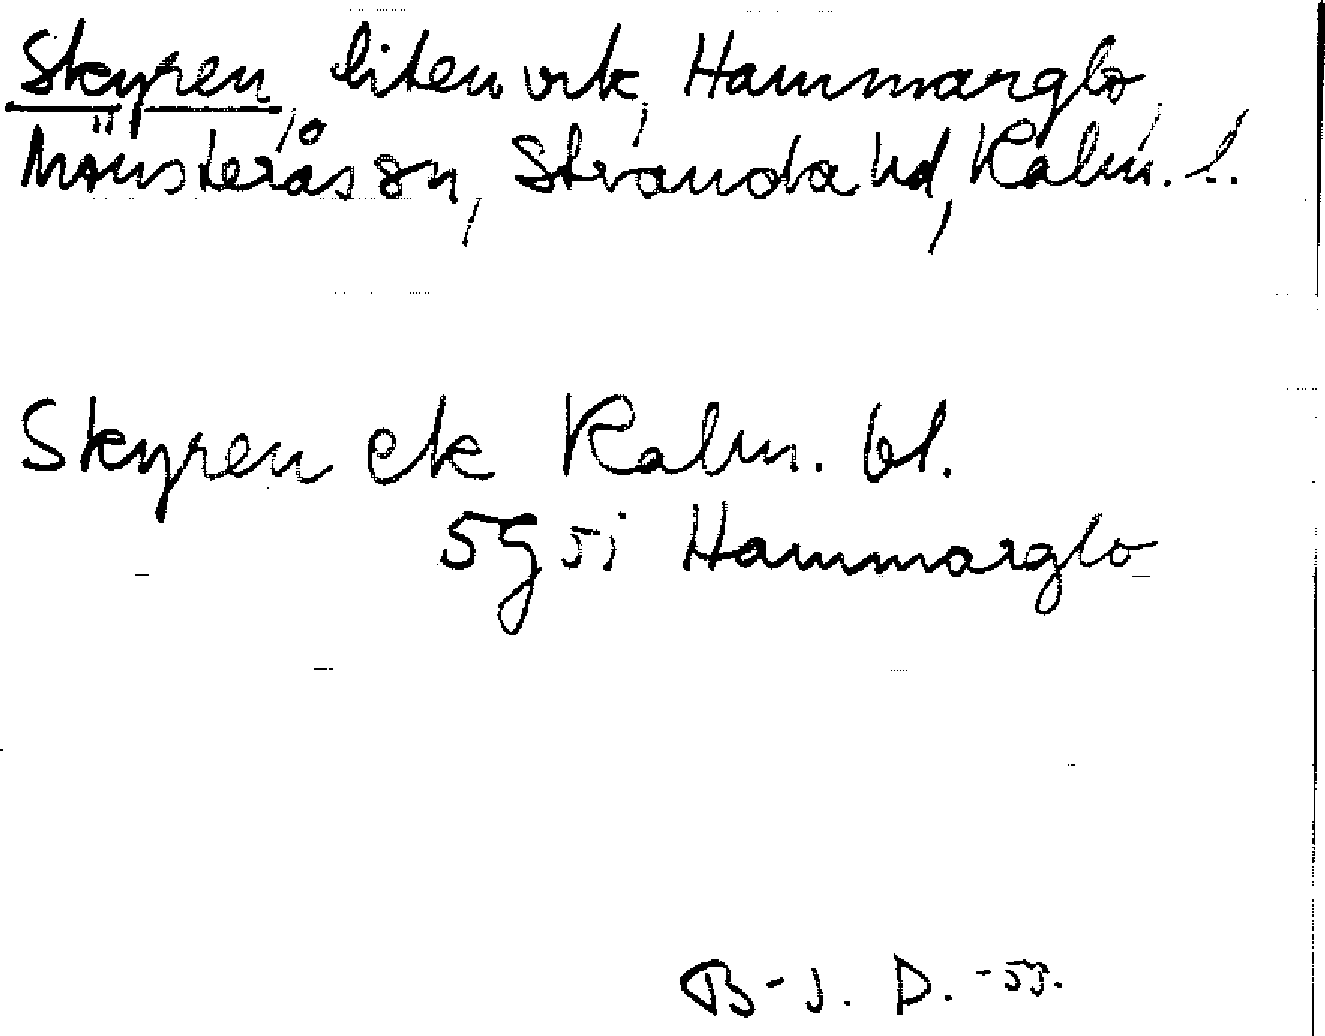 Skyren, liten vik, Hammarglo,
Mönsterås sn, Stranda hd, Kalm. l.
Skyren ek Kalm. bl.
5g 5i Hammarglo
B-J. D. -55.